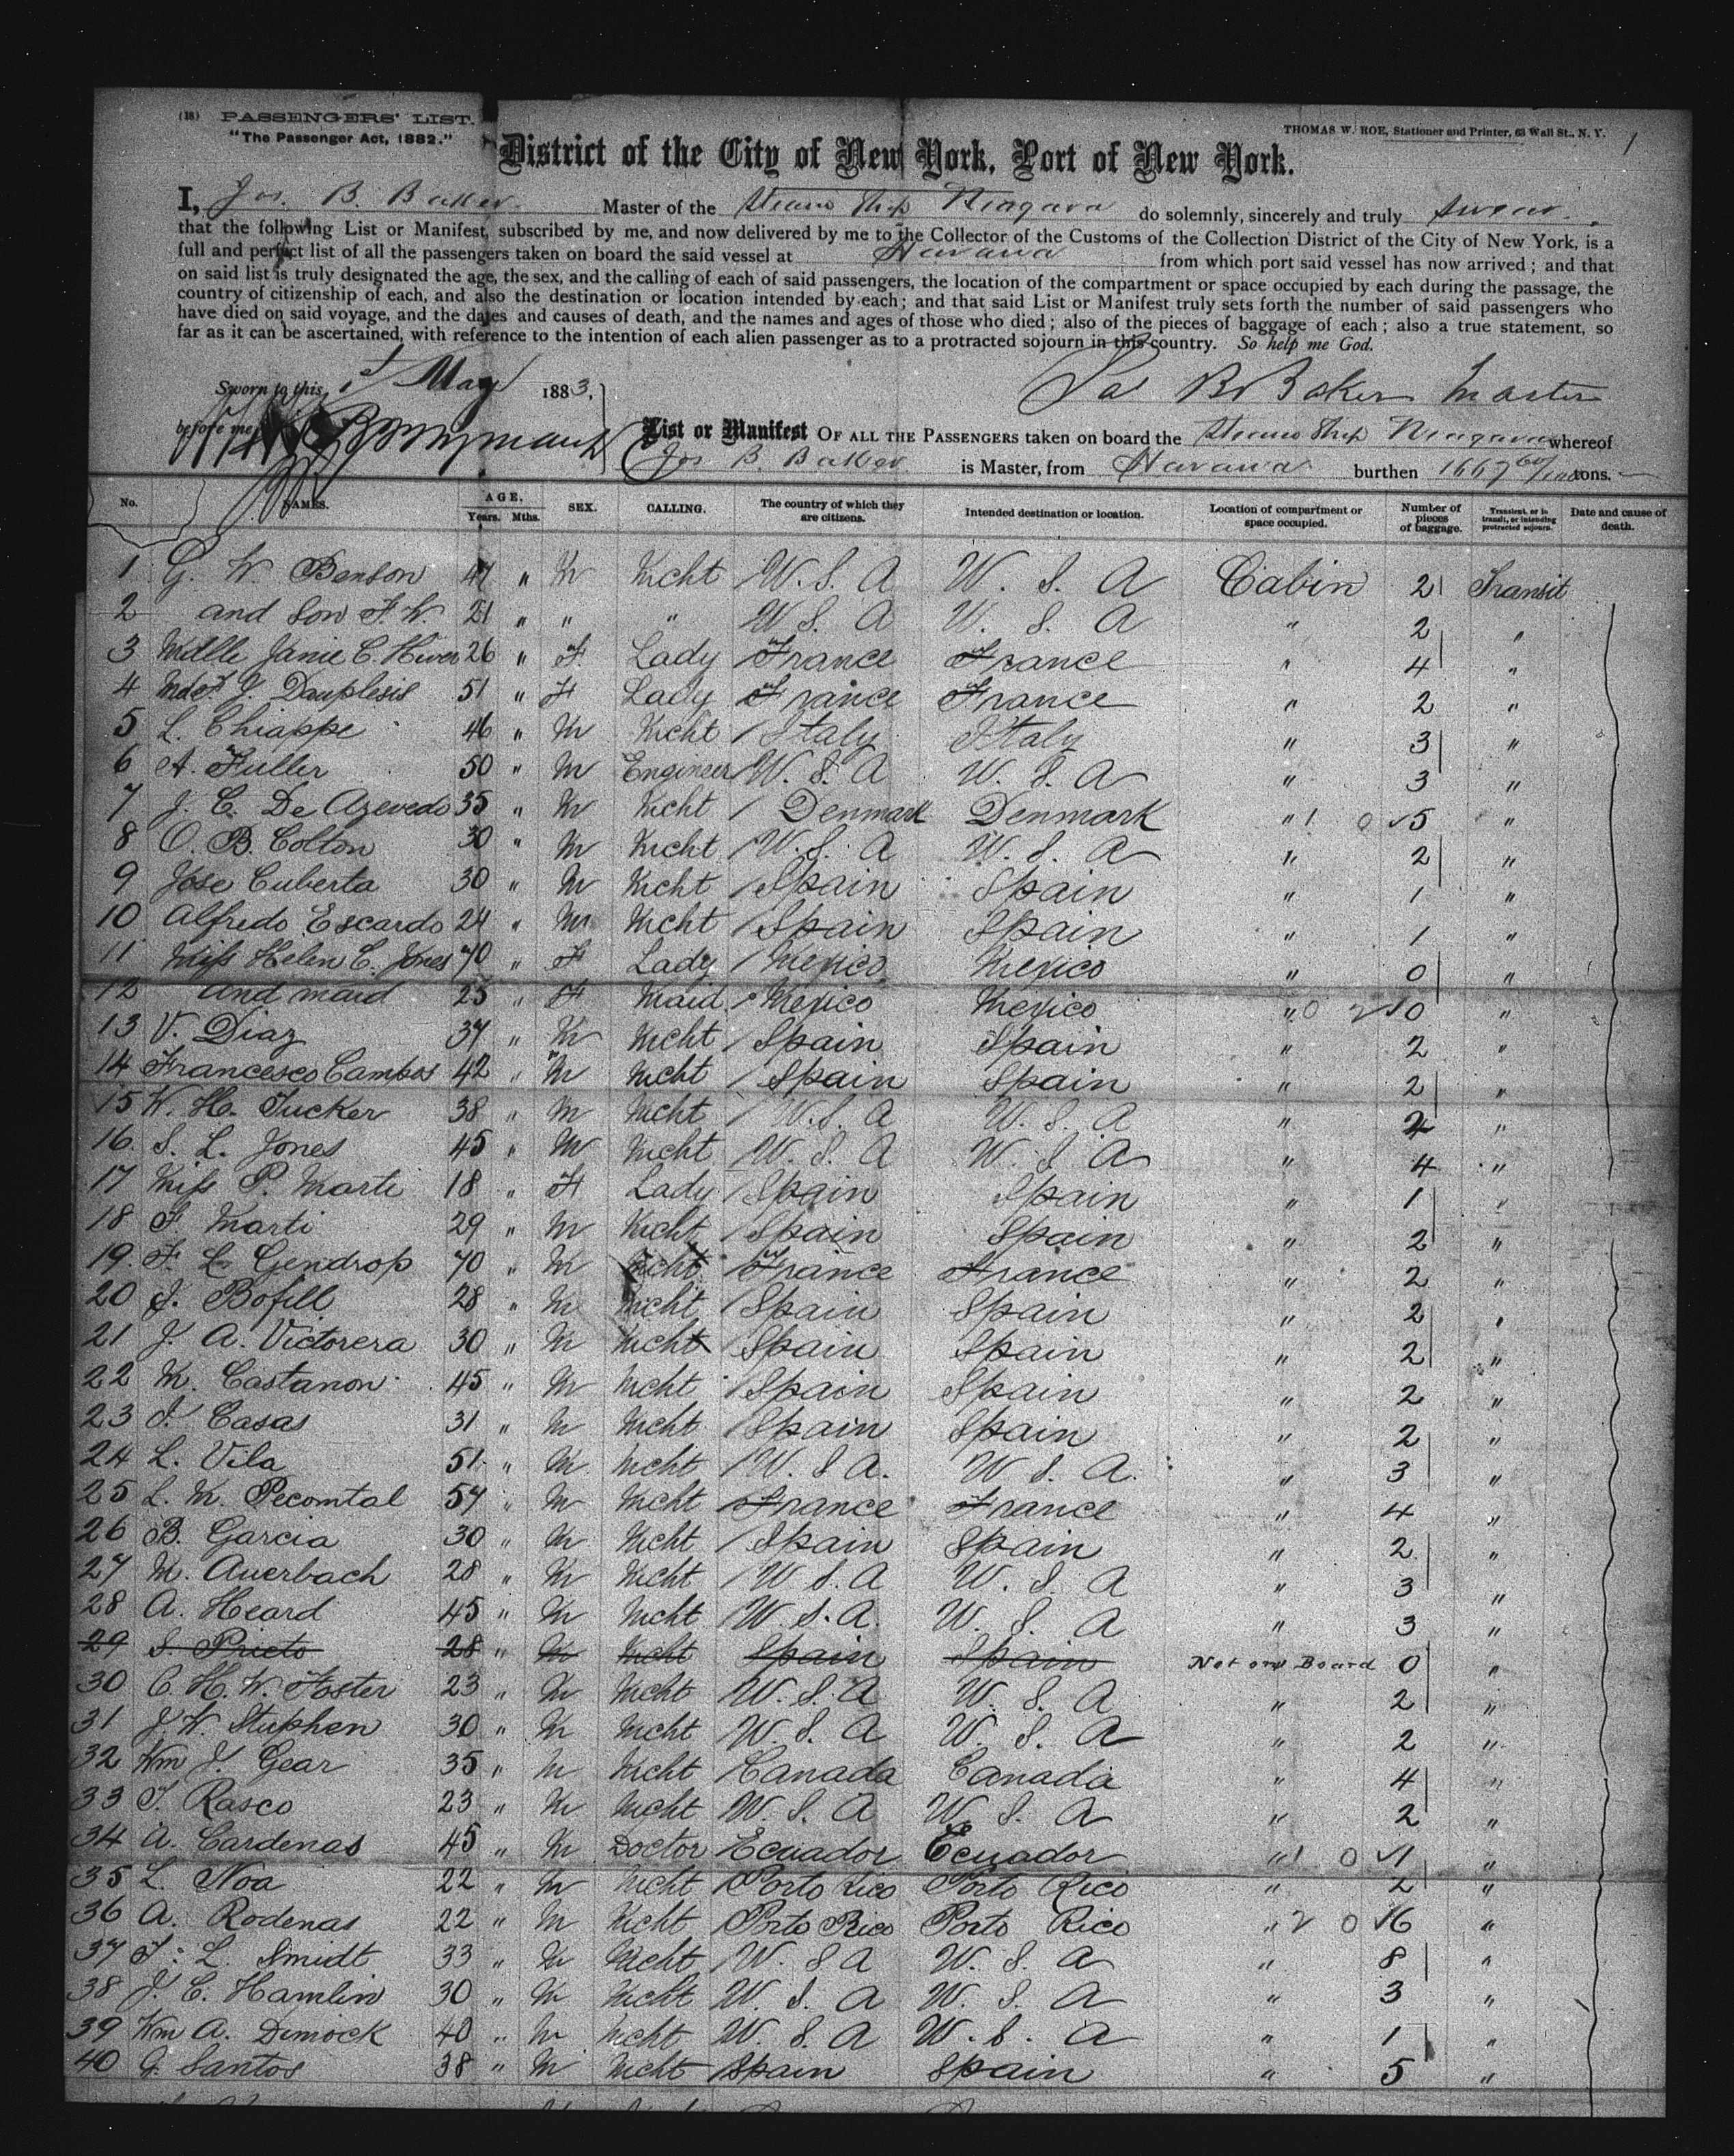 (18) PASSENGERS' LIST.
"The Passenger Act, 1882."
THOMAS W. ROE, Stationer and Printer, 63 Wall St., N. Y.
1
District of the City of New York, Port of New York.
I, Jos. B. Baker Master of the Steam Ship Niagara do solemnly, sincerely and truly swear
that the following List or Manifest, subscribed by me, and now delivered by me to the Collector of the Customs of the Collection District of the City of New York, is a
full and perfect list of all the passengers taken on board the said vessel at Havana from which port said vessel has now arrived; and that
on said list is truly designated the age, the sex, and the calling of each of said passengers, the location of the compartment or space occupied by each during the passage, the
country of citizenship of each, and also the destination or location intended by each; and that said List or Manifest truly sets forth the number of said passengers who
have died on said voyage, and the dates and causes of death, and the names and ages of those who died; also of the pieces of baggage of each; also a true statement, so
far as it can be ascertained, with reference to the intention of each alien passenger as to a protracted sojourn in this country. So help me God.
Sworn to this 1st May 1883,
before me
Jos B Baker Master
List or Manifest OF ALL THE PASSENGERS taken on board the Steam Ship Niagara whereof
Jos B. Baker is Master, from Havana burthen 1667 60/100 tons.
No. NAMES. AGE. Years. Mths. SEX. CALLING. The country of which they are citizens. Intended destination or location. Location of compartment or space occupied. Number of pieces of baggage. Transient, or in transit, or intending protracted sojourn. Date and cause of death.
1 G. W. Benson 47 " M Mcht U.S.A U.S.A Cabin 2 Transit
2 and Son F. W. 21 " " " U.S.A U.S.A " 2 "
3 Mdlle Janie C. 26 " F. Lady France France " 4 "
4 J. Dauplesis 51 " F Lady France France " 2 "
5 L. Chiappe 46 " M Mcht Italy Italy " 3 "
6 A. Fuller 50 " M Engineer U.S.A U.S.A " 3 "
7 J. C. De Azevedo 35 " M Mcht Denmark Denmark " 1 0 5 "
8 O. B. Colton 30 " M Mcht U.S.A U.S.A " 2 "
9 Jose Cuberta 30 " M Mcht Spain Spain " 1 "
10 Alfredo Escardo 24 " M Mcht Spain Spain " 1 "
11 Miss Helen C. Jones 70 " F Lady Mexico Mexico " 0 "
12 and maid 25 " F Maid Mexico Mexico " 0 10 "
13 V. Diaz 37 " M Mcht Spain Spain " 2 "
14 Francesco Campos 42 " M Mcht Spain Spain " 2 "
15 W. H. Tucker 38 " M Mcht U.S.A U.S.A " 2 "
16 S. L. Jones 45 " M Mcht U.S.A U.S.A " 4 "
17 Miss P. Marti 18 " F Lady Spain Spain " 1 "
18 F Marti 29 " M Mcht Spain Spain " 2 "
19 F. L. Gendrop 70 " M Mcht France France " 2 "
20 J. Bofill 28 " M Mcht Spain Spain " 2 "
21 J. A. Victorera 30 " M Mcht Spain Spain " 2 "
22 M. Castanon 45 " M Mcht Spain Spain " 2 "
23 J. Casas 31 " M Mcht Spain Spain " 2 "
24 L. Vila 51 " M Mcht U.S.A. U.S.A. " 3 "
25 L. M. Pecomtal 57 " M Mcht France France " 4 "
26 B. Garcia 30 " M Mcht Spain Spain " 2 "
27 M. Auerbach 28 " M Mcht U.S.A U.S.A " 3 "
28 A. Heard 45 " M Mcht U.S.A. U.S.A " 3 "
29 S. Prieto 28 " M Mcht Spain Spain Not on Board 0 "
30 C. H. W. Foster 23 " M Mcht U.S.A U.S.A " 2 "
31 J. W. Stuphen 30 " M Mcht U.S.A U.S.A " 2 "
32 Wm J. Gear 35 " M Mcht Canada Canada " 4 "
33 T. Rasco 23 " M Mcht U.S.A U.S.A " 2 "
34 A. Cardenas 45 " M Doctor Ecuador Ecuador " 1 0 1 "
35 L. Noa 22 " M Mcht Porto Rico Porto Rico " 2 "
36 A. Rodenas 22 " M Mcht Porto Rico Porto Rico " 2 0 16 "
37 F. L. Smidt 33 " M Mcht U.S.A U.S.A " 8 "
38 J. C. Hamlin 30 " M Mcht U.S.A U.S.A " 3 "
39 Wm A. Dimock 40 " M Mcht U.S.A U.S.A " 1 "
40 G. Santos 38 " M Mcht Spain Spain " 5 "